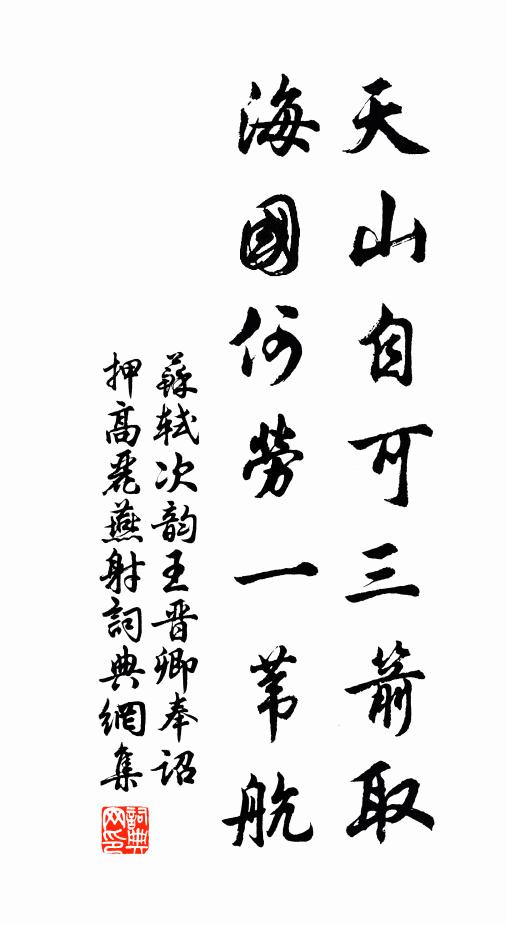 天山自可三箭取
海國何勞一苇航
蘇轼次韵王晋卿奉詔
押高麗燕射詞典網集
詞典网印